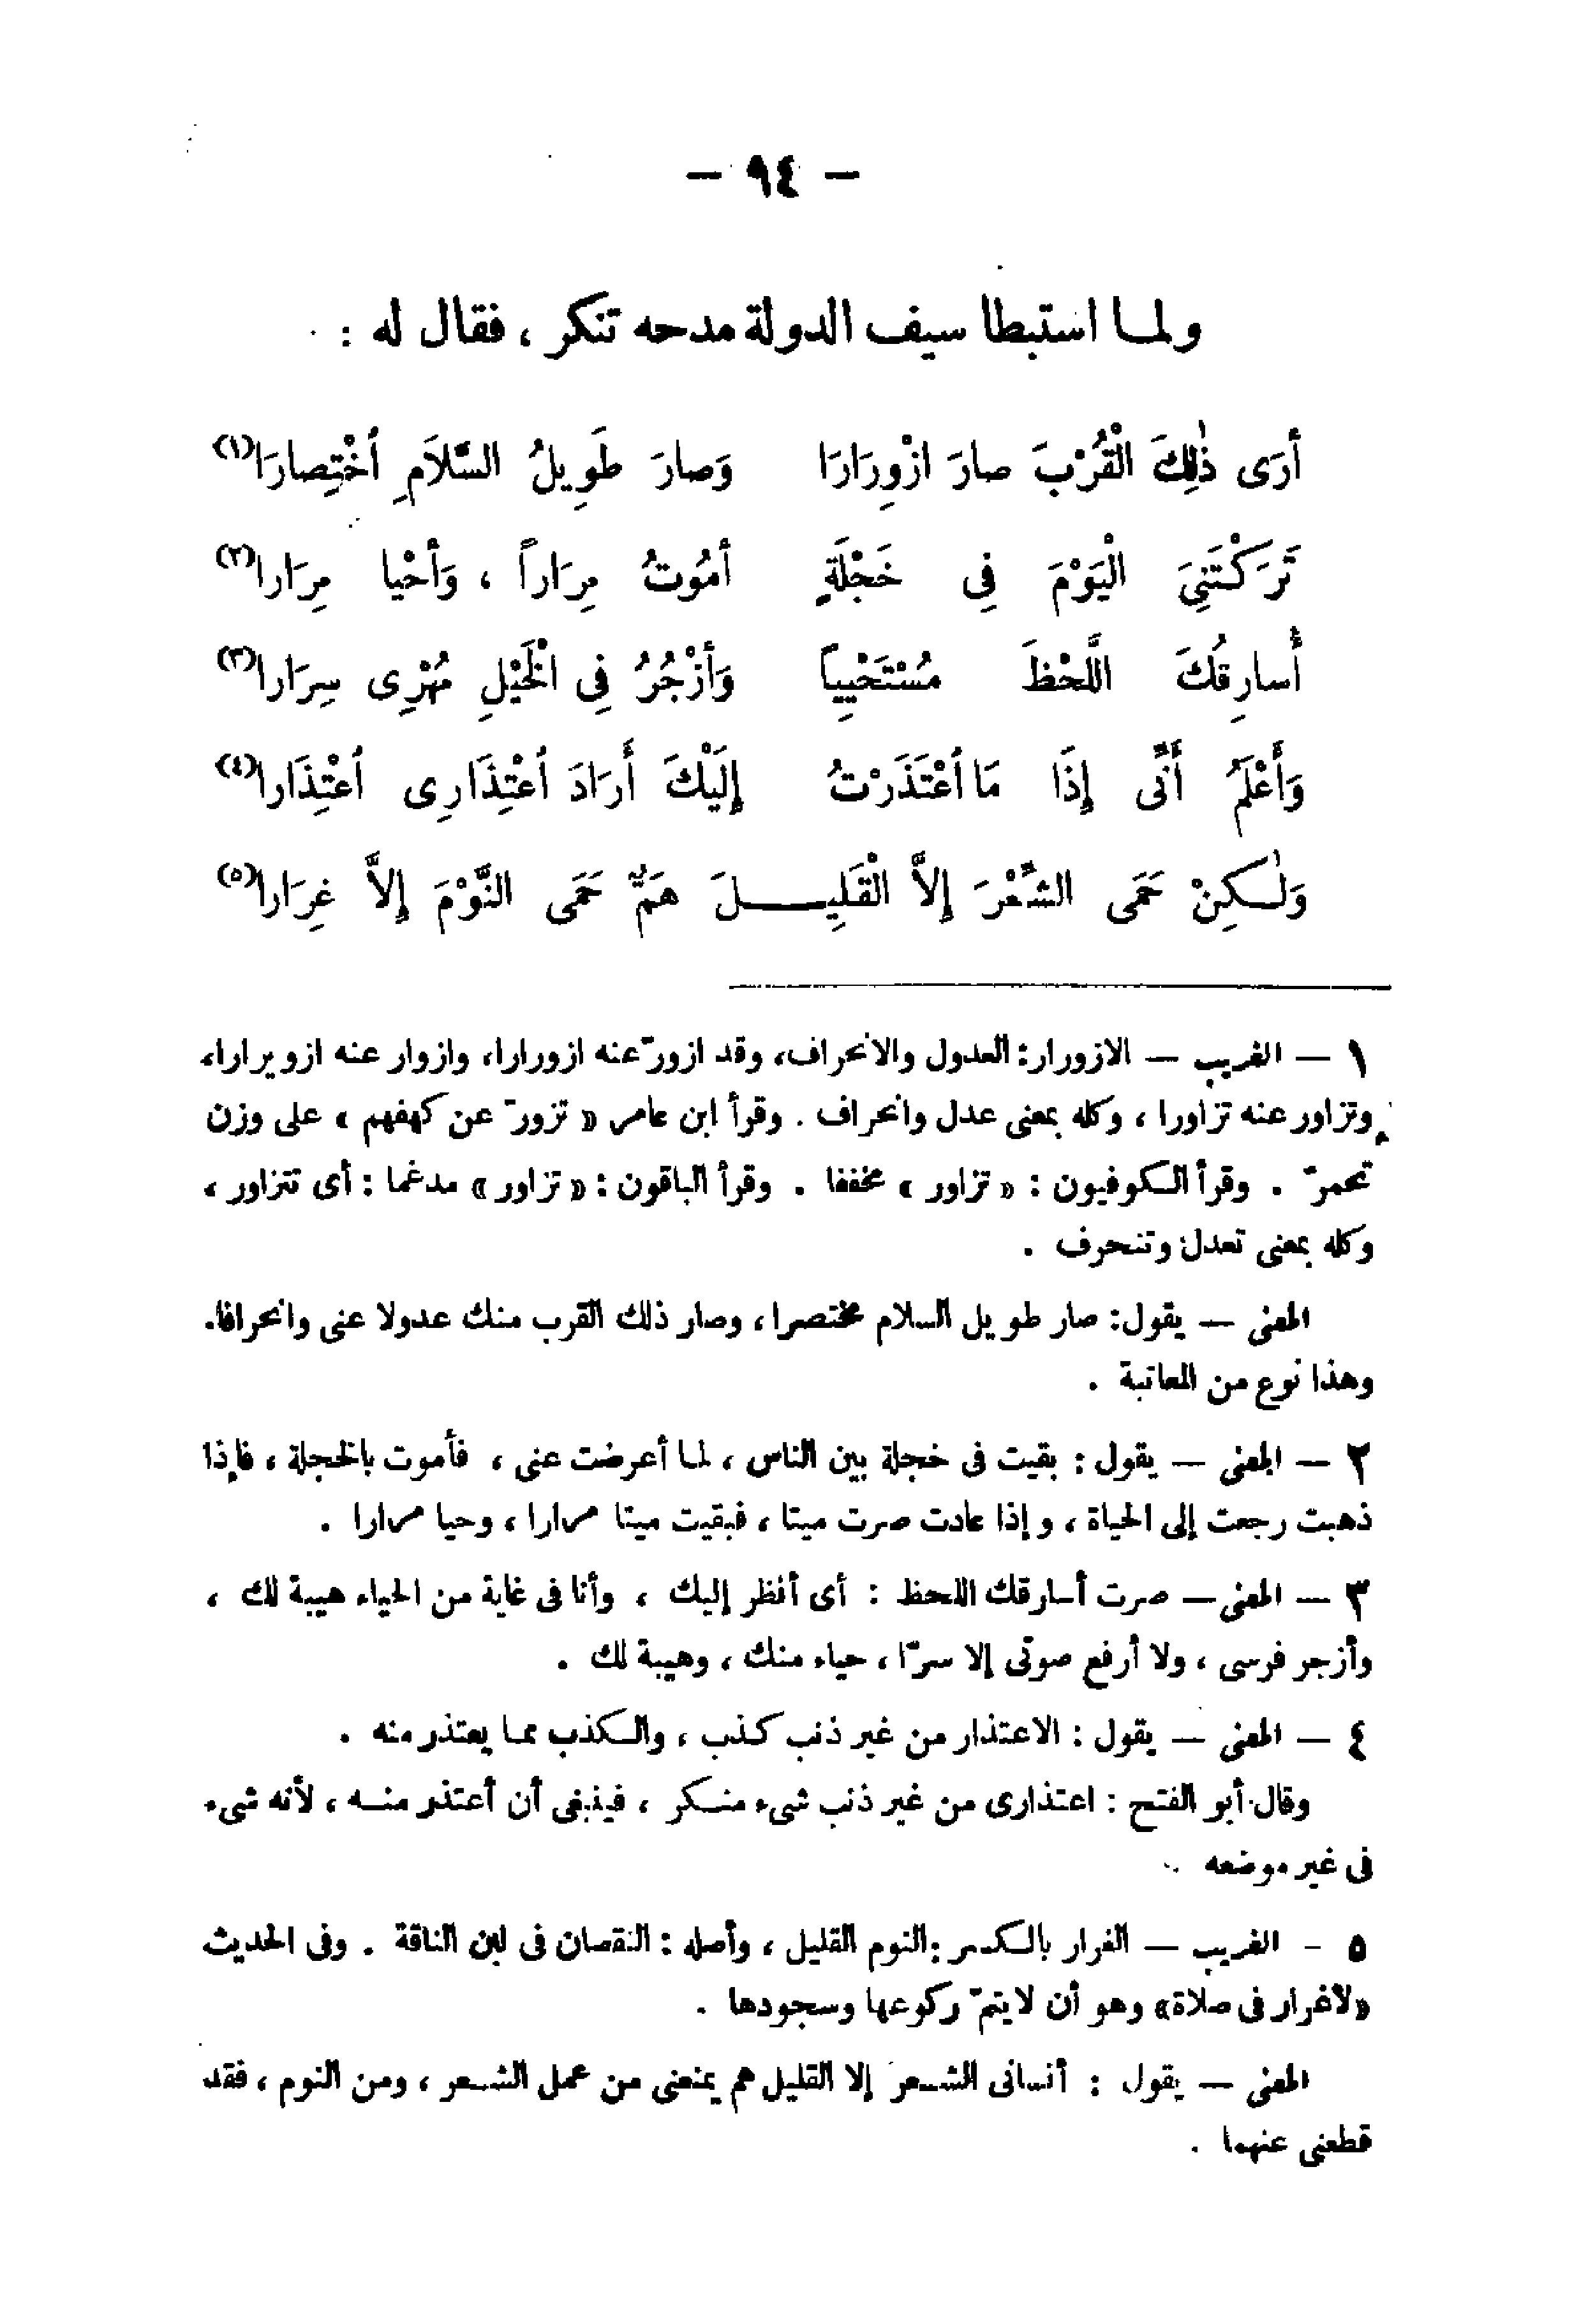 — ٩٤ —
ولما استبطا سيف الدولة مدحه تنكر ، فقال له :
أرَى ذٰلِكَ الْقُرْبَ صارَ ازْوِرَارَا وَصارَ طَوِيلُ السَّلاَمِ أخْتِصارَا(١)
تَرَكْتَنِىَ الْيَوْمَ فِى خَجْلَةٍ أمُوتُ مِرَاراً ، وَأحْيا مِرَارا(٢)
أُسارِقُكَ اللَّحْظَ مُسْتَحْيِياً وَأزْجُرُ فِى الْخَيْلِ مُهْرِى سِرَارا(٣)
وَأَعْلَمُ أَنِّى إِذَا مَا أعْتَذَرْتُ إِلَيْكَ أَرَادَ أعْتِذَارِى أعْتِذَارا(٤)
وَلٰكِنْ حَمَى الشِّعْرَ إِلاَّ الْقَلِيـــلَ هَمٌّ حَمَى النَّوْمَ إِلاَّ غِرَارا(٥)
١ — الغريب — الازورار: العدول والانحراف، وقد ازورّ عنه ازورارا، وازوار عنه ازويرارا،
وتزاور عنه تزاورا ، وكله بمعنى عدل وانحراف . وقرأ ابن عامر « تزورّ عن كهفهم » على وزن
تحمرّ . وقرأ الكوفيون : « تزاور » مخففا . وقرأ الباقون : « تزاور » مدغما : أى تتزاور ،
وكله بمعنى تعدل وتنحرف .
المعنى — يقول: صار طويل السلام مختصرا ، وصار ذلك القرب منك عدولا عنى وانحرافا.
وهذا نوع من المعاتبة .
٢ — المعنى — يقول : بقيت فى خجلة بين الناس ، لما أعرضت عنى ، فأموت بالخجلة ، فإذا
ذهبت رجعت إلى الحياة ، وإذا عادت صرت ميتا ، فبقيت ميتا مرارا ، وحيا مرارا .
٣ — المعنى — صرت أسارقك اللحظ : أى أنظر إليك ، وأنا فى غاية من الحياء هيبة لك ،
وأزجر فرسى ، ولا أرفع صوتى إلا سرّا ، حياء منك ، وهيبة لك .
٤ — المعنى — يقول : الاعتذار من غير ذنب كذب ، والكذب مما يعتذر منه .
وقال أبو الفتح : اعتذارى من غير ذنب شىء منكر ، فينبغى أن أعتذر منه ، لأنه شىء
فى غير موضعه .
٥ - الغريب — الغرار بالكسر : النوم القليل ، وأصله : النقصان فى لبن الناقة . وفى الحديث
«لاغرار فى صلاة» وهو أن لايتمّ ركوعها وسجودها .
المعنى — يقول : أنسانى الشعر إلا القليل هم يمنعنى من عمل الشعر ، ومن النوم ، فقد
قطعنى عنهما .